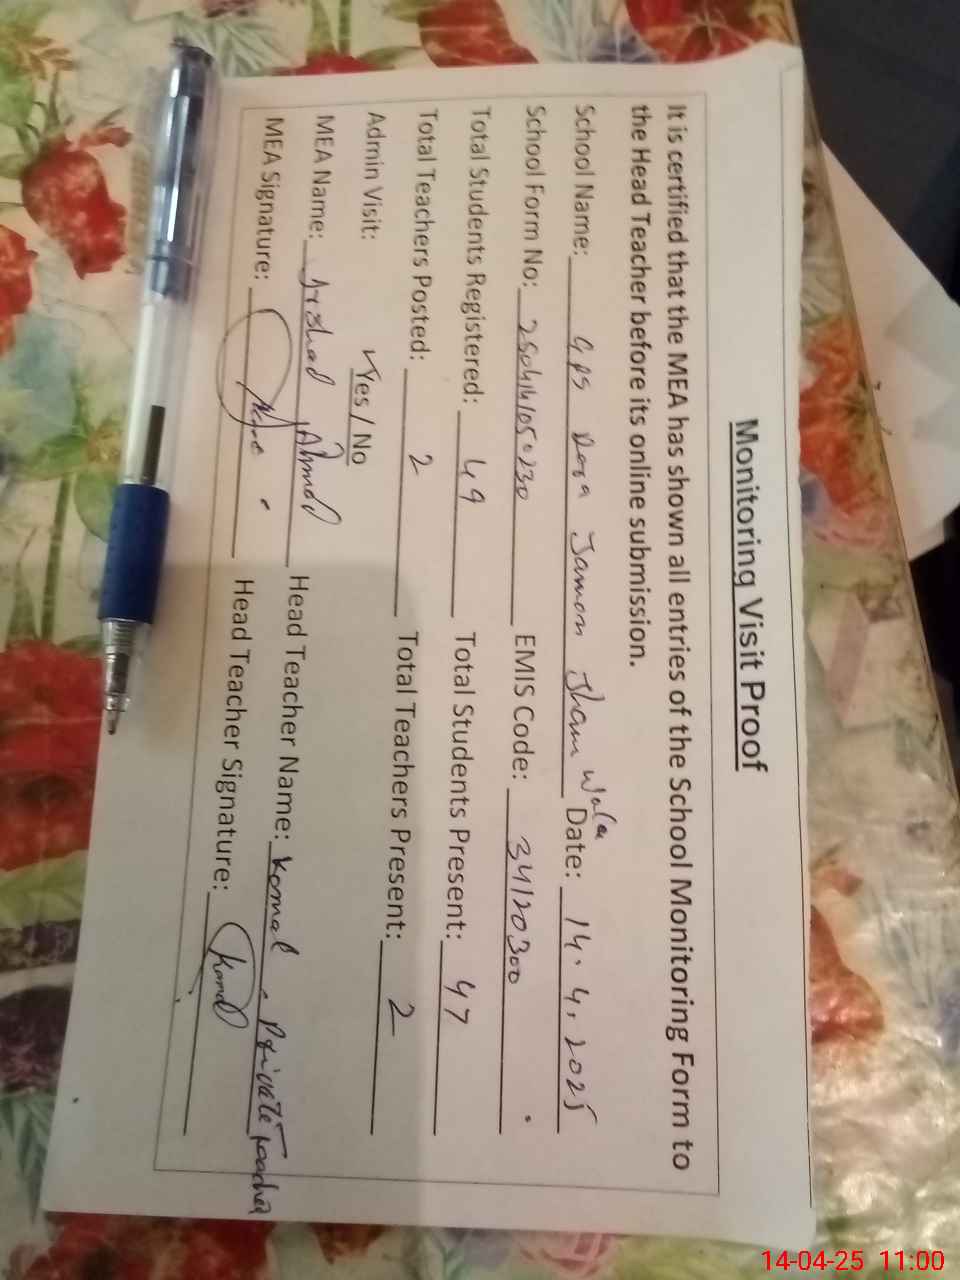 Monitoring Visit Proof
It is certified that the MEA has shown all entries of the School Monitoring Form to
the Head Teacher before its online submission.
School Name: GPS Dera Jamon Sham Wala Date: 14.4.2025
School Form No: 2504141050230 EMIS Code: 34120300
Total Students Registered: 49 Total Students Present: 47
Total Teachers Posted: 2 Total Teachers Present: 2
Admin Visit: ✓Yes / No
MEA Name: Arshad Ahmad Head Teacher Name: Komal - Private teacher
MEA Signature: Head Teacher Signature: Komal
14-04-25 11:00